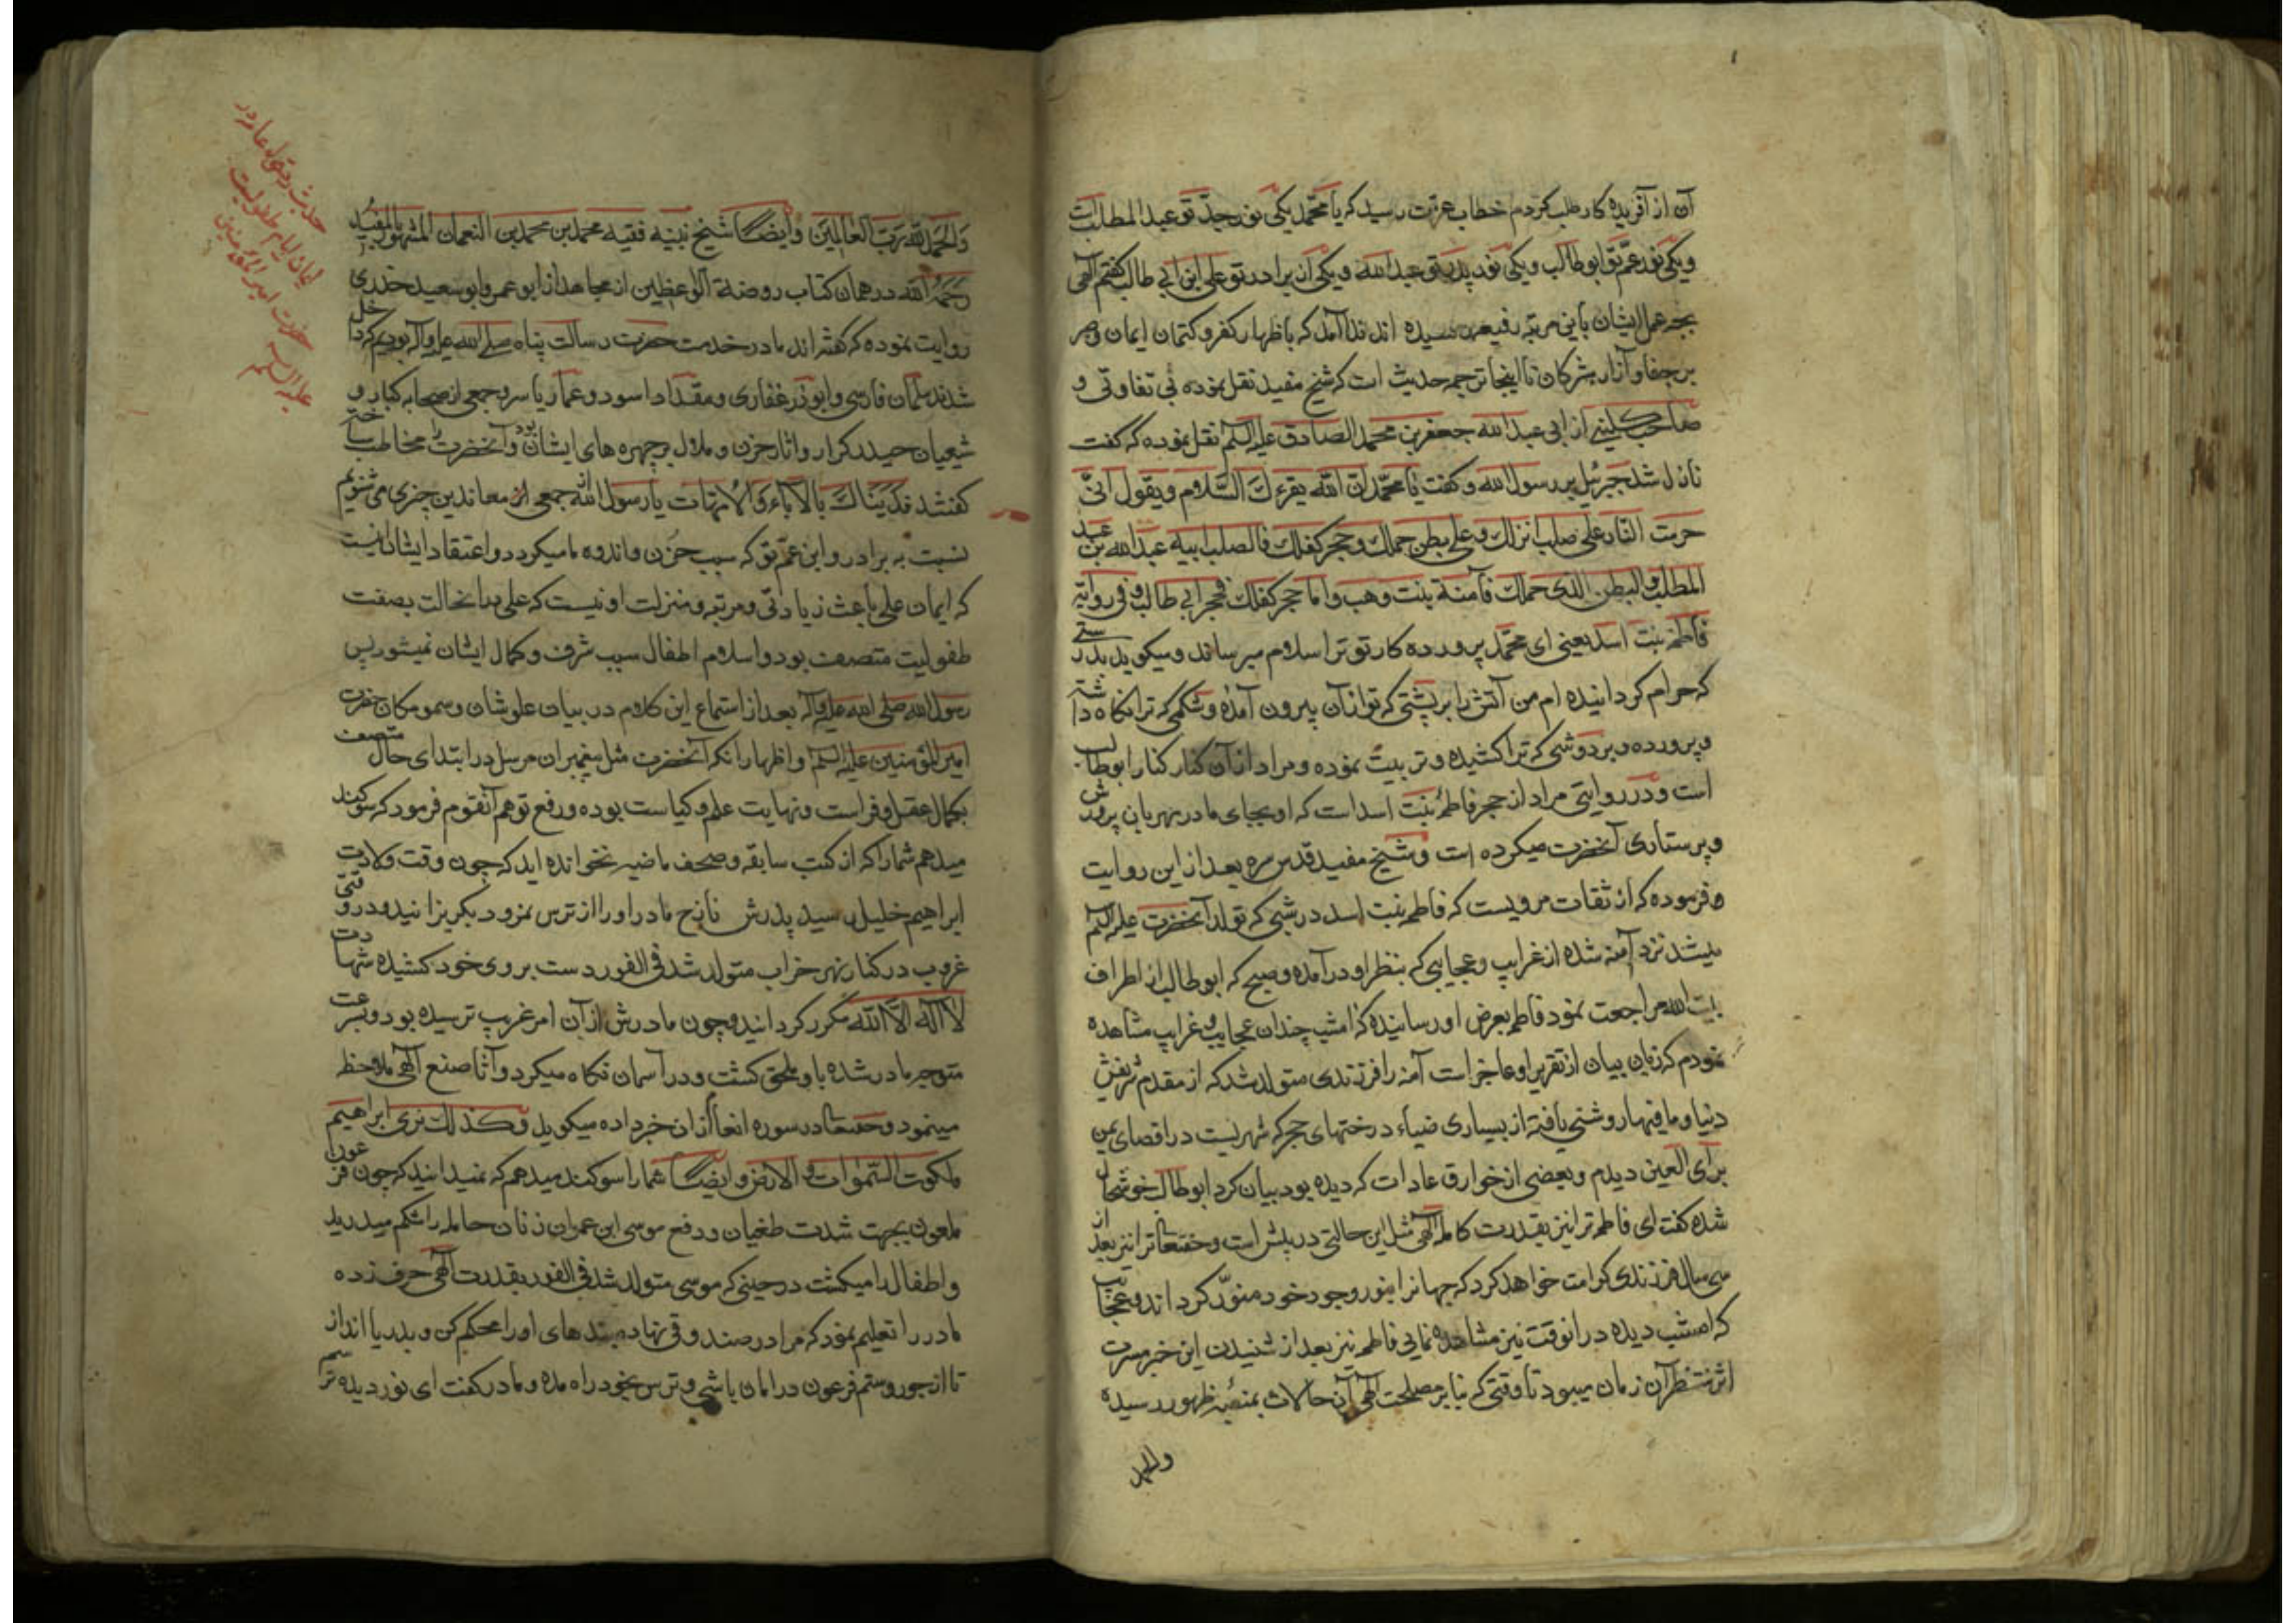 آن از آفریده کار طلب کردم خطاب عزت رسید که یا محمد یکی نور جد تو عبد المطلبست
ویکی نور عم تو ابو طالب ویکی نور پدر تو عبد الله ویکی از برادر تو علی ابن ابی طالب گفتم الهی
بچه عمل ایشان باین مرتبه رفیعه رسیده اند ندا آمد که باظهار کفر وکتمان ایمان وصبر
بر جفا وآزار مشرکان تا اینجا ترجمه حدیث است که شیخ مفید نقل نموده بی تفاوتی و
صاحب کلینی از ابی عبد الله جعفر بن محمد الصادق علیه السلم نقل نموده که گفت
نازل شد جبرئیل بر رسول الله وگفت یا محمد ان الله یقرءك السلام ویقول انی
حرمت النار علی صلب انزلك وعلی بطن حملك وحجر کفلك فالصلب ابیه عبد الله بن عبد
المطلب والبطن الذی حملك فآمنة بنت وهب واما حجر کفلك فحجر ابی طالب وفی روایة
فاطمه بنت اسد یعنی ای محمد پرورده کار تو ترا سلام میرساند ومیکوید بدرستی
که حرام کردانیده ام من آتش را بر پشتی که تو از آن بیرون آمدۀ وشکمی که ترا نکاه داشته
وپرورده وبر دوشی که ترا کشیده وتربیت نموده ومراد از آن کنار کنار ابو طالب
است ودر روایتی مراد از حجر فاطمۀ بنت اسد است که او بجای مادر مهربان پرورش
وپرستاری آنحضرت میکرده است وشیخ مفید قدس سره بعد از این روایت
فرموده که از ثقات مرویست که فاطمه بنت اسد در شبی که تولد آنحضرت علیه السلم
میشد نزد آمنه شده از غرایب وعجایبی که بنظر او در آمده وصبح که ابو طالب از اطراف
بیت الله مراجعت نمود فاطمه بعرض او رسانیده که امشب چندان عجایب وغرایب مشاهده
نمودم که زبان بیان از تقریر او عاجز است آمنه را فرزندی متولد شد که از مقدم شریفش
دنیا وما فیها روشنی یافته از بسیاری ضیاء درختهای حجر که شهریست در اقصای یمن
برای العین دیدم وبعضی از خوارق عادات که دیده بود بیان کرد ابو طالب خوشحال
شده گفت ای فاطمه ترا نیز بقدرت کامله الهی مثل این حالتی در پیش است وحقتعالی ترا نیز بعد از
سی سال فرزندی کرامت خواهد کرد که جهانرا بنور وجود خود منور کرداند وعجایب
که امشب دیده در انوقت نیز مشاهده نمایی فاطمه نیز بعد از شنیدن این خبر مسرت
اثر منتظر آن زمان میبود تا وقتی که بنابر مصلحت الهی آن حالات بمنصۀ ظهور رسیده
والحمد
والحمد لله رب العالمین وایضا شیخ نبیه فقیه محمد بن محمد بن النعمان المشهور بالمفید
رحمه الله در همان کتاب روضة الواعظین از مجاهد از ابو عمرو ابو سعید خدری
روایت نموده که گفته اند ما در خدمت حضرت رسالت پناه صلی الله علیه وآله بودیم که داخل
شدند سلمان فارسی وابو ذر غفاری ومقداد اسود وعمار یاسر وجمعی از صحابه کبار و
شیعیان حیدر کرار واثار حزن وملال بر چهره های ایشان بود وآنحضرت را مخاطب ساخته
گفتند فدیناك بالآباء والامهات یا رسول الله جمعی از معاندین چیزی می شنویم
نسبت به برادر وابن عم تو که سبب حزن واندوه ما میکردد واعتقاد ایشان اینست
که ایمان علی باعث زیادتی ومرتبه ومنزلت او نیست که علی در انحالت بصفت
طفولیت متصف بود واسلام اطفال سبب شرف وکمال ایشان نمیشود پس
رسول الله صلی الله علیه وآله بعد از استماع این کلام در بیان علو شان وسمو مکان حضرت
امیر المؤمنین علیه السلم واظهار انکه آنحضرت مثل پیغمبران مرسل در ابتدای حال متصف
بکمال عقل وفراست ونهایت علم وکیاست بوده ورفع توهم آنقوم فرمود که سوکند
میدهم شما را که از کتب سابقه وصحف ماضیه نخوانده اید که چون وقت ولادت
ابراهیم خلیل رسید پدرش تارخ مادر او را از ترس نمرود بکریزانید ودر وقتی
غروب در کنار نهر خراب متولد شد فی الفور دست بروی خود کشیده شهادت
لا اله الا الله مکرر کردانید وچون مادرش از آن امر غریب ترسیده بود وبسرعت
متوجه مادر شده باو ملحق گشت ودر آسمان نکاه میکرد وآثار صنع الهی ملاحظه
مینمود وحقتعالی در سوره انعام از ان خبر داده میکوید وکذلك نری ابراهیم
ملکوت السموات والارض وایضا شما را سوکند میدهم که نمیدانید که چون فرعون
ملعون بجهت شدت طغیان ودفع موسی ابن عمران زنان حامله را شکم میدرید
واطفال را میکشت در حینی که موسی متولد شد فی الفور بقدرت الهی حرف زده
مادر را تعلیم نمود که مرا در صندوقی نهاده بندهای او را محکم کن وبدریا انداز
تا از جور وستم فرعون در امان باشی وترس بخود راه مده ومادر گفت ای نور دیده ترسم
ایمان ایام طفولیت
حضرت امیر المؤمنین
علیه السلم